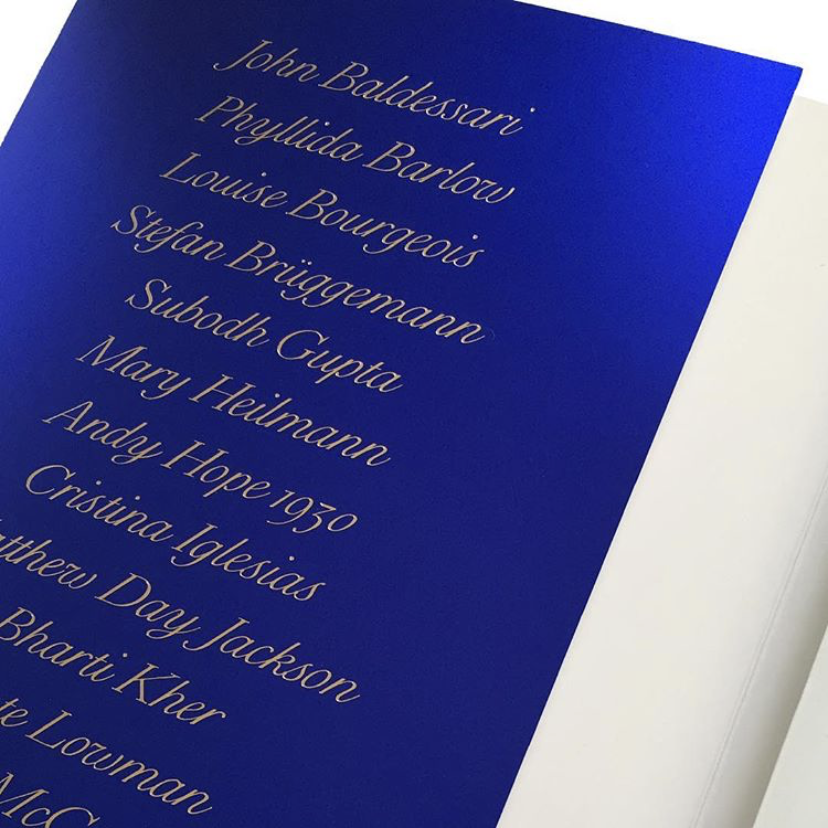 John Baldessari
Phyllida Barlow
Louise Bourgeois
Stefan Brüggemann
Subodh Gupta
Mary Heilmann
Andy Hope 1930
Cristina Iglesias
tthew Day Jackson
Bharti Kher
te Lowman
McC